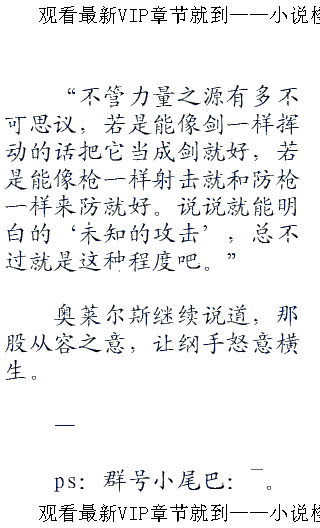 观看最新VIP章节就到——小说检
“不管力量之源有多不
可思议，若是能像剑一样挥
动的话把它当成剑就好，若
是能像枪一样射击就和防枪
一样来防就好。说说就能明
白的‘未知的攻击’，总不
过就是这种程度吧。”
奥莱尔斯继续说道，那
股从容之意，让纲手怒意横
生。
—
ps：群号小尾巴：¯。
观看最新VIP章节就到——小说检